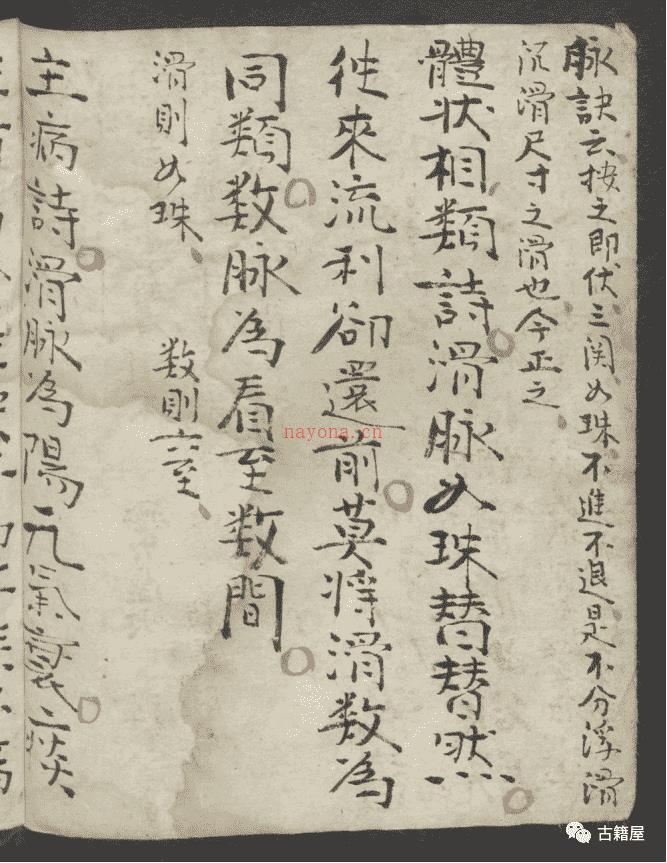 脉訣云按之即伏三関如珠不進不退是不分浮滑
沉滑尺寸之滑也今正之
體状相類詩滑脉如珠替替然
往來流利卻還前莫将滑数為
同類数脉為看至数間
滑則如珠 数則六至
主病詩滑脉為陽元氣衰痰
nayona.cn
古籍屋